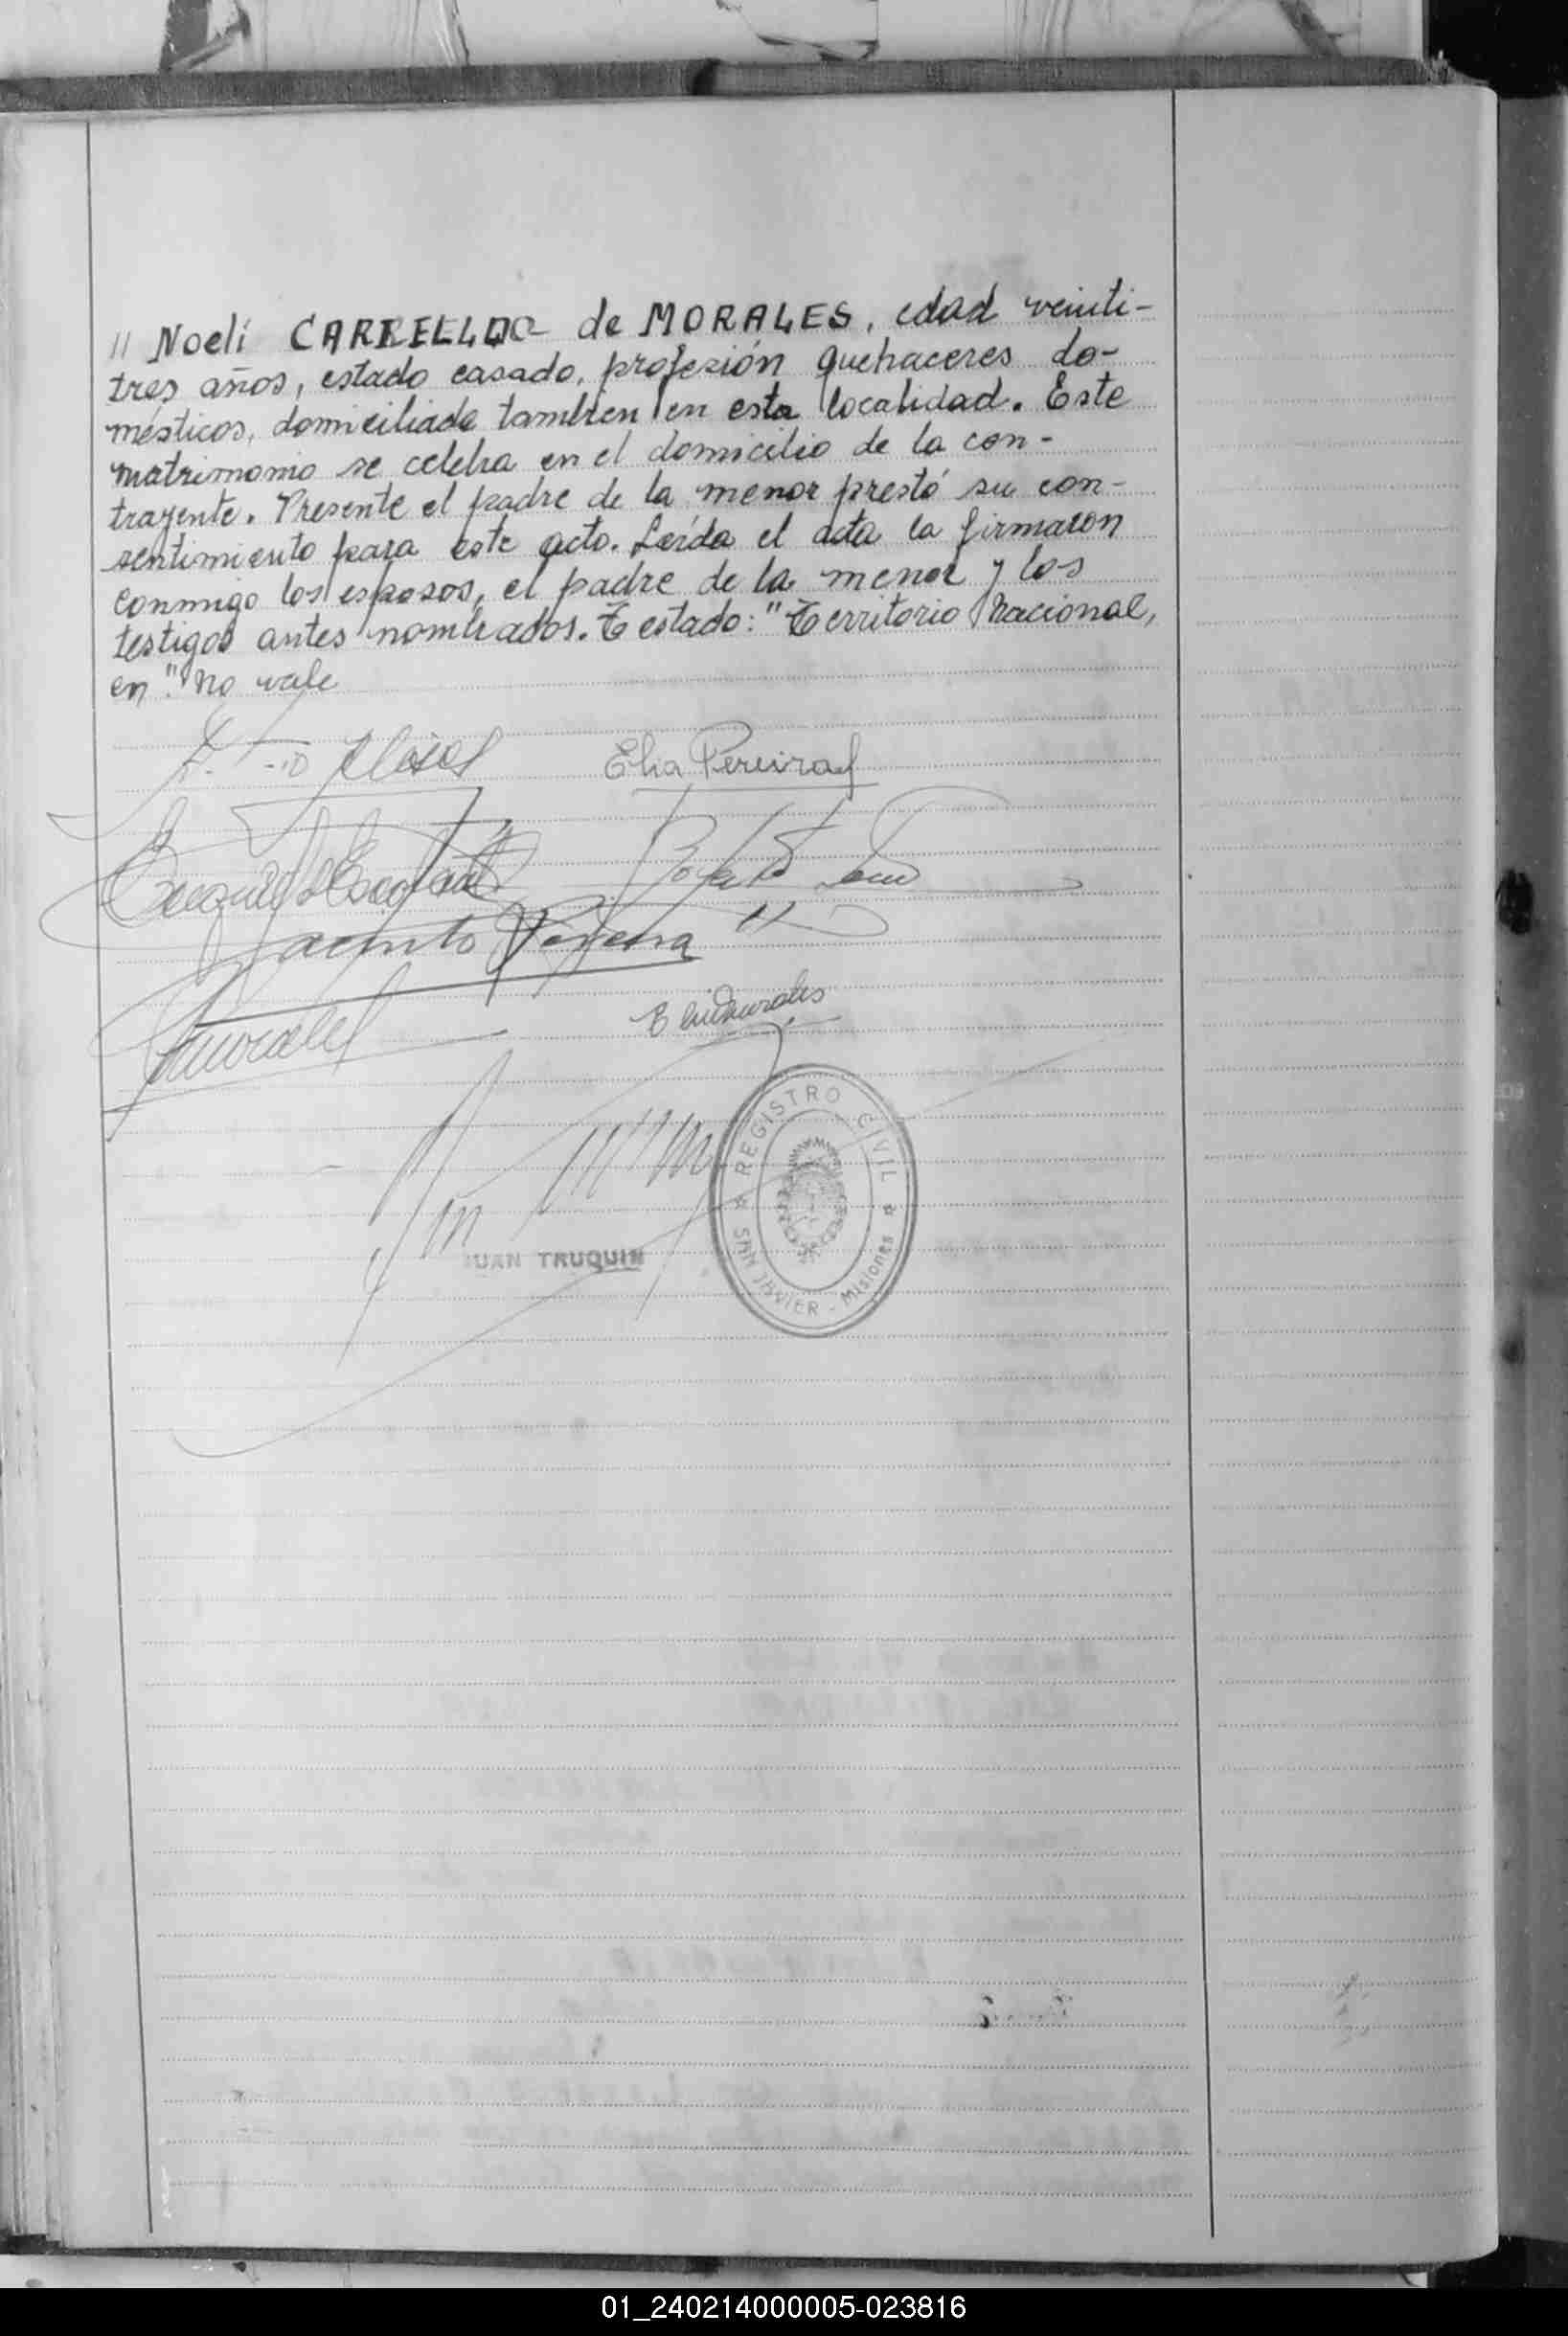 // Noeli CARBELLDO de MORALES, edad veinti-
tres años, estado casado, profesión quehaceres do-
mésticos, domiciliada tambien en esta localidad. Este
matrimonio se celebra en el domicilio de la con-
trayente. Presente el padre de la menor prestó su con-
sentimiento para este acto. Leída el acta la firmaron
conmigo los esposos, el padre de la menor y los
testigos antes nombrados. Testado: "Territorio Nacional,
en". No vale
Elia Pereira
Jacinto Pereira
JUAN TRUQUIN
REGISTRO CIVIL
SAN JAVIER - Misiones
01_240214000005-023816